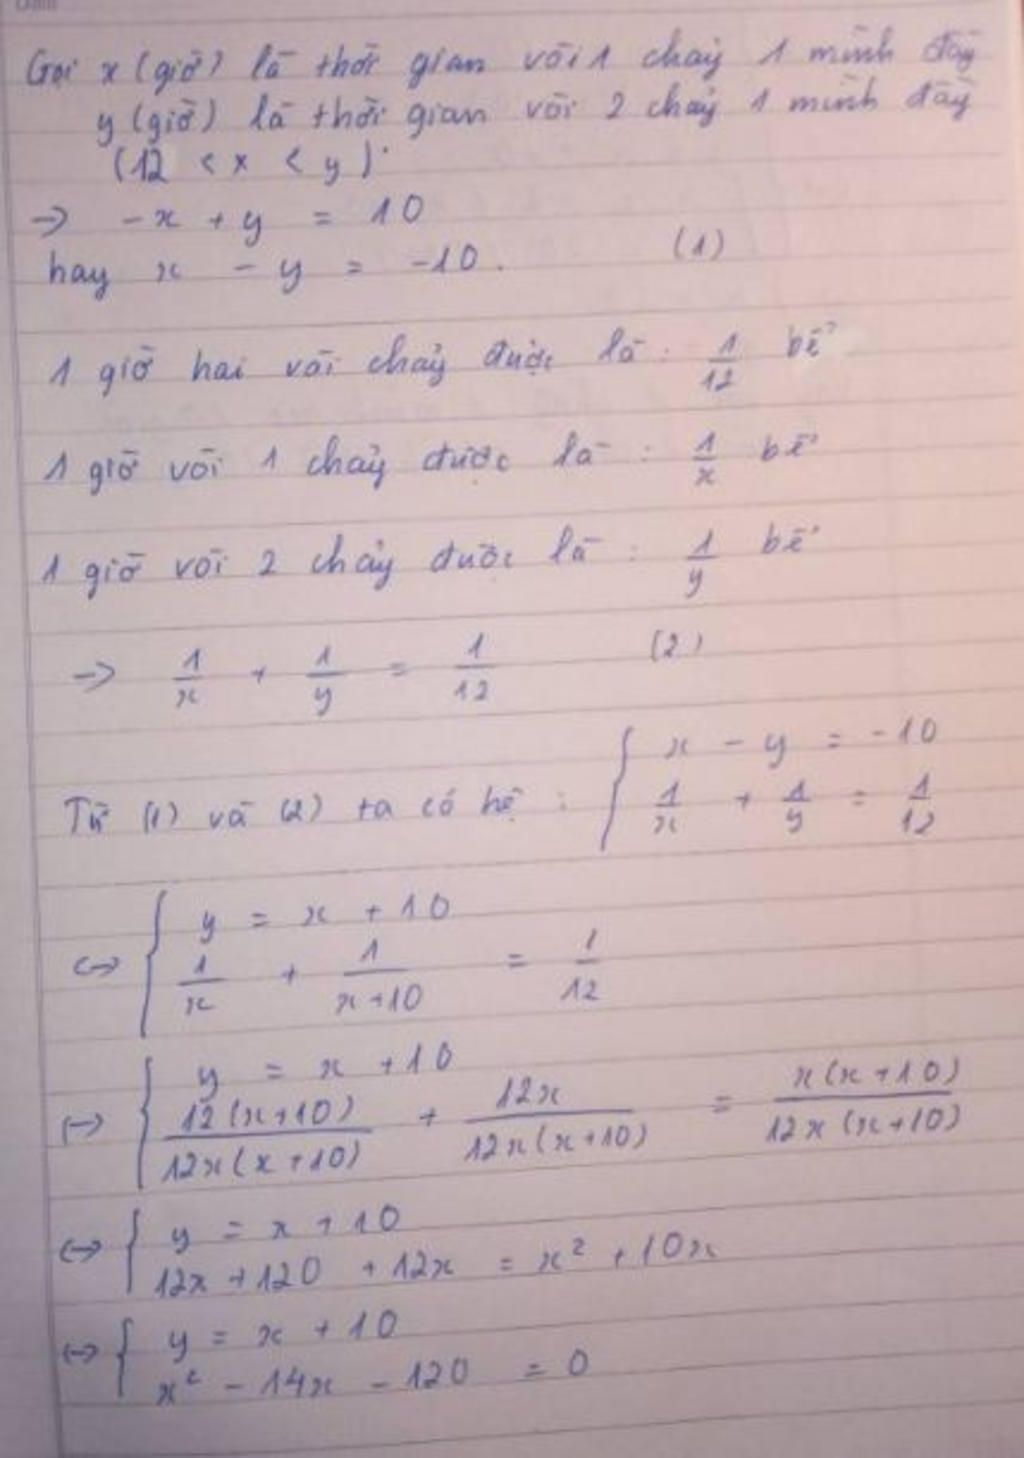 Gọi x (giờ) là thời gian vòi 1 chảy 1 mình đầy
y (giờ) là thời gian vòi 2 chảy 1 mình đầy
(12 < x < y).
→ -x + y = 10
hay x - y = -10. (1)
1 giờ hai vòi chảy được là: 1/12 bể
1 giờ vòi 1 chảy được là: 1/x bể
1 giờ vòi 2 chảy được là: 1/y bể
→ 1/x + 1/y = 1/12 (2)
Từ (1) và (2) ta có hệ: { x - y = -10
1/x + 1/y = 1/12
↔ { y = x + 10
1/x + 1/(x+10) = 1/12
↔ { y = x + 10
12(x+10)/12x(x+10) + 12x/12x(x+10) = x(x+10)/12x(x+10)
↔ { y = x + 10
12x + 120 + 12x = x² + 10x
↔ { y = x + 10
x² - 14x - 120 = 0